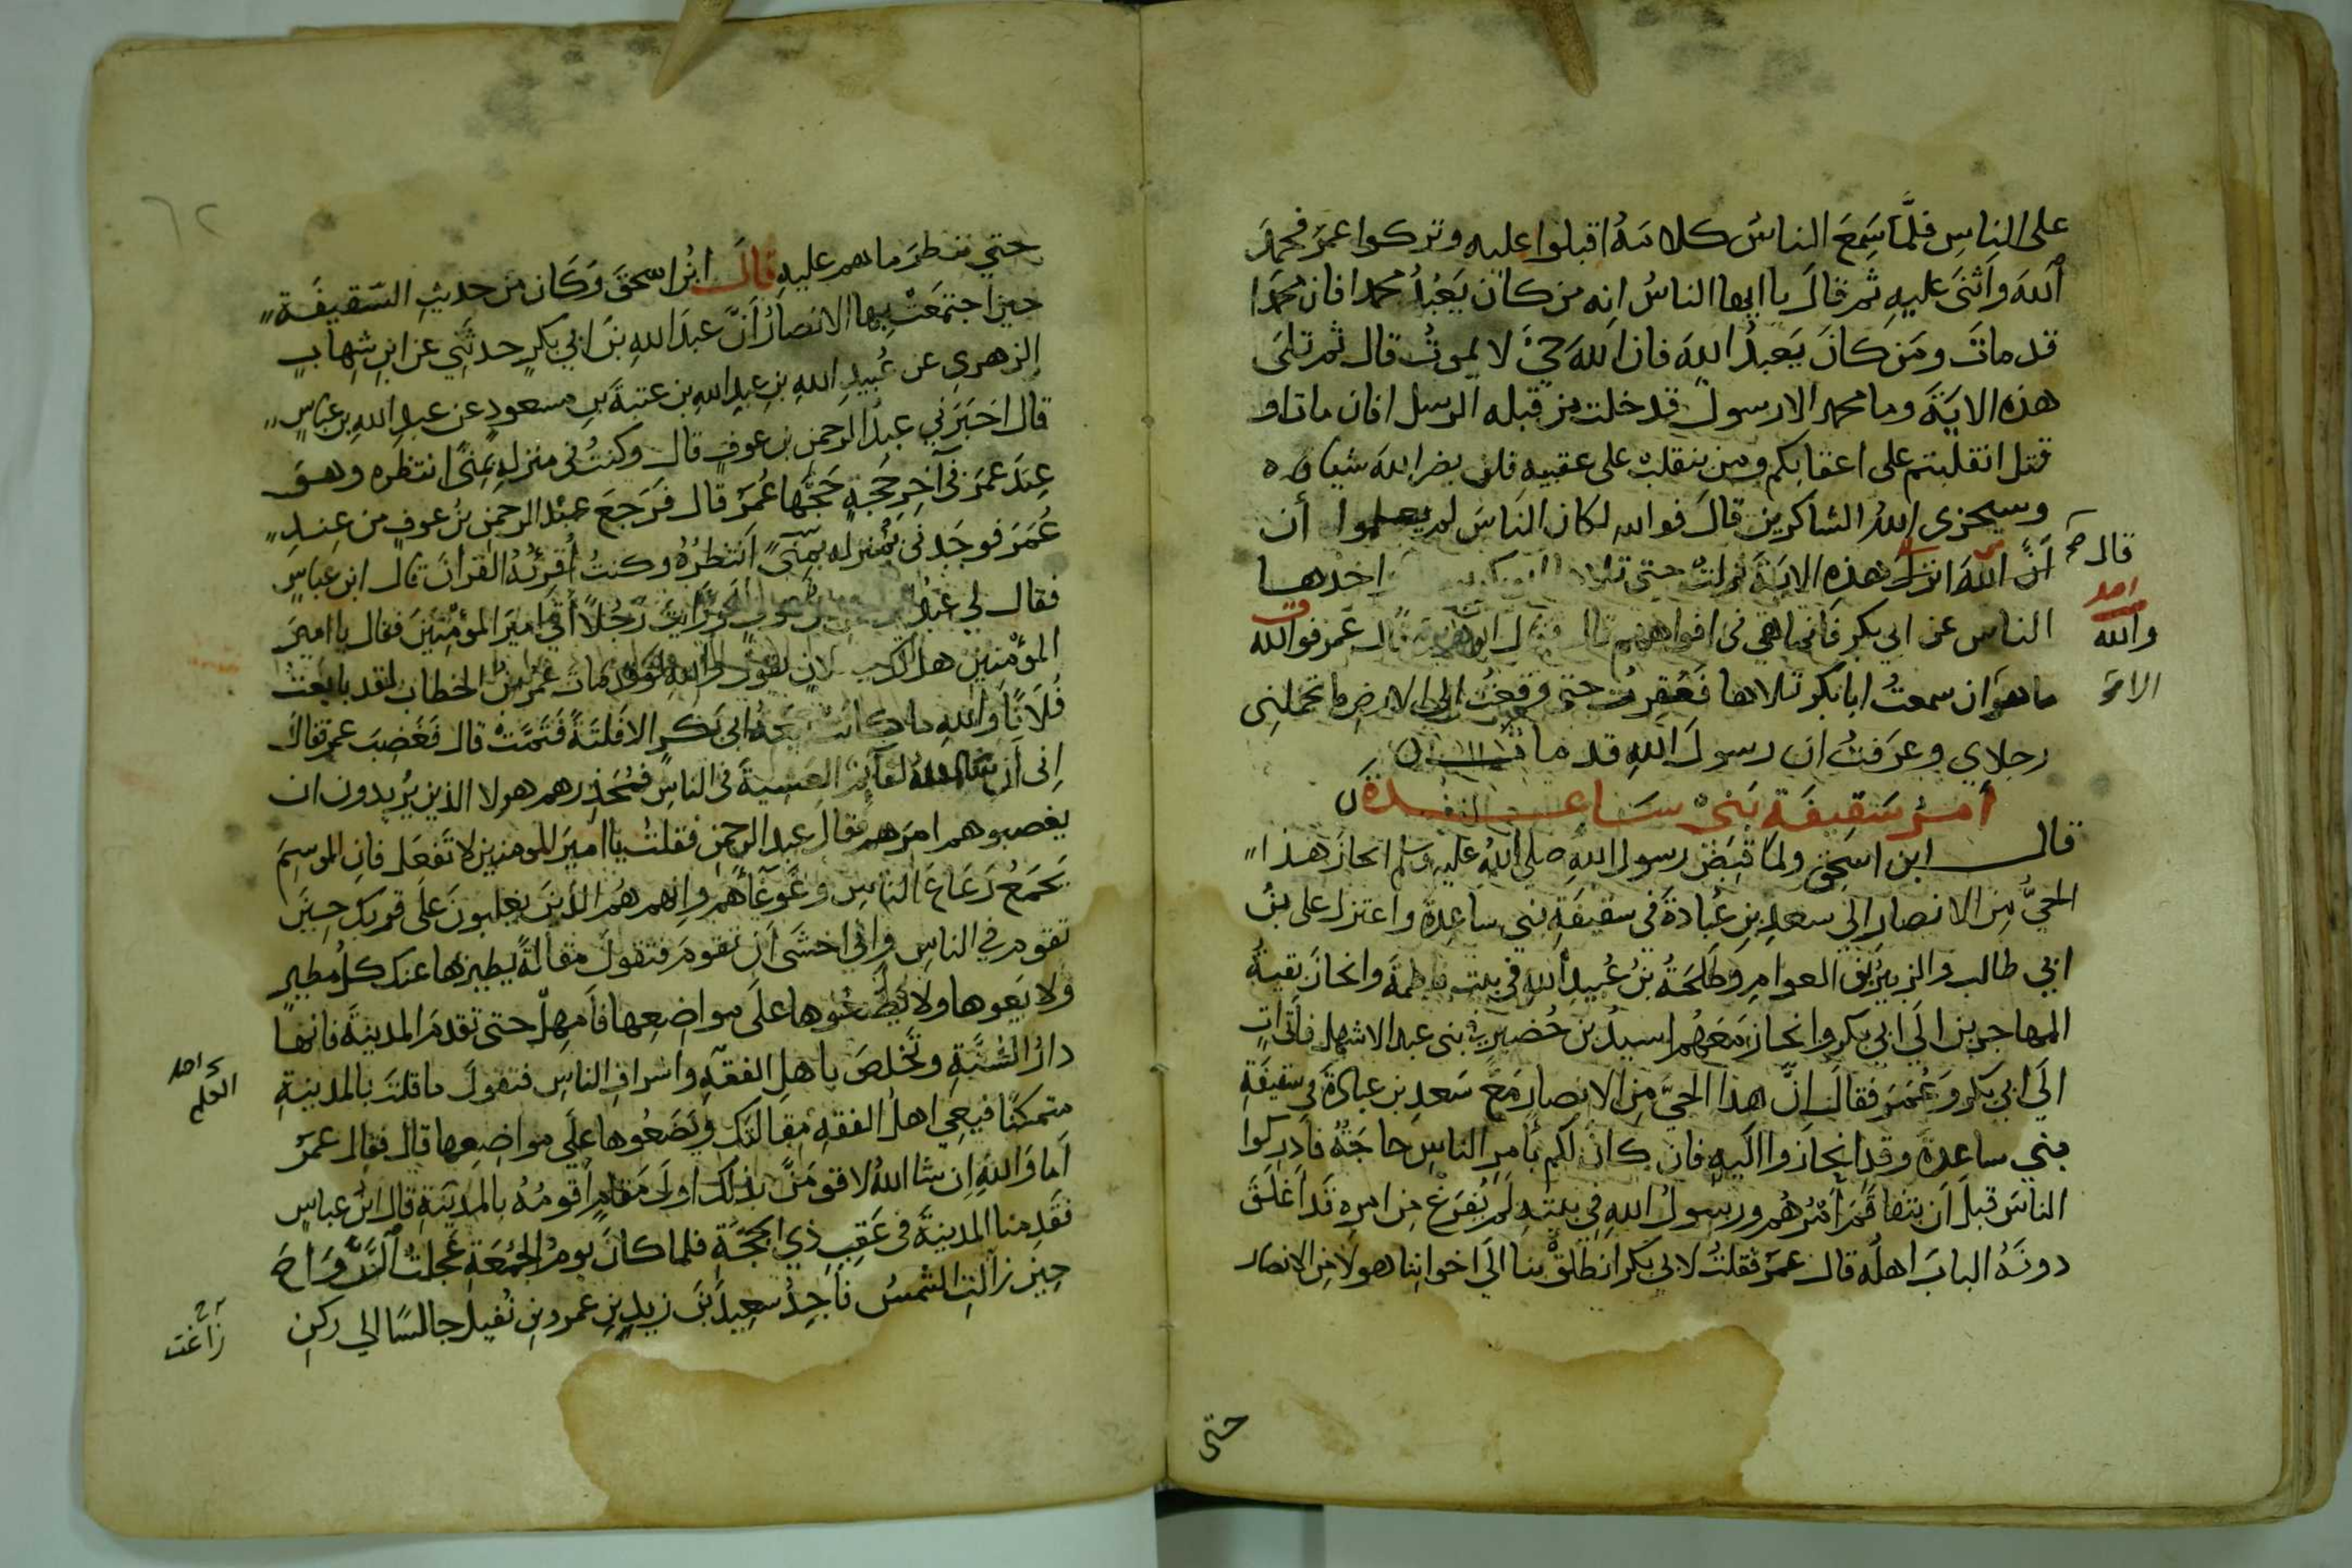 على الناس فلَمَّا سَمِعَ الناسُ كلامَهُ اقبلوا عليه وتركوا عمرَ فحمدَ
اللهَ واَثنَى عليهِ ثم قالَ يا ايها الناسُ انه من كانَ يَعْبُدُ محمدا فان محمَّدا
قد ماتَ ومَن كانَ يَعبدُ اللهَ فان اللهَ حيٌّ لا يموتُ قال ثم تلَى
هذه الايَةَ وما محمد الا رسول قد خلت من قبله الرسل افان مات او
قتل انقلبتم على اعقابكم ومن ينقلب على عقبيه فلن يضر الله شيا
وسيجزى اللهُ الشاكرين قالَ فوالله لكان الناسَ لم يعلموا أن
اَنَّ اللهَ انزل هذه الايَةَ نزلت حتى تلاها ابو بكر اخذها
الناس عن ابي بكر فانما هي في افواههم قال فقال ابو هريرة قال عمر فوالله
ما هو ان سمعتُ ابا بكر تلاها فعَقِرتُ حتى وقعتُ الى الارض ما تحملنى
رجلاي وعرَفتُ ان رسولَ اللهِ قد مات
أمرُ سَقِيفَةِ بَنِي سَاعدةَ
قال ابن اسحق ولما قُبِضَ رسول الله صلى اللهُ عليه وسلم انحازَ هذا
الحيُّ مِن الانصار الى سعدِ بنِ عُبادةَ في سقيفَةِ بني ساعِدةَ واعتزل على بنُ
ابي طالب والزبيرُ بن العوامِ وطَلحَةُ بنُ عُبيدِ اللهِ في بيت فاطمةَ وانحازَ بقيةُ
المهاجرين الَى ابي بكر وانحاز مَعَهُم اسيدُ بن حُضيرٍ في بنى عبد الاشهل فأتى اتٍ
الَى ابي بَكر وَعُمَرَ فقالَ انَّ هذا الحيَّ مِن الانصار مَعَ سَعدِ بن عبادةَ في سقيفَةِ
بني ساعدةَ وقد انحازوا اليهِ فان كانَ لكم بأمرِ الناسِ حاجَةٌ فادركوا
الناسَ قبلَ اَن يتفاقَمَ اَمْرُهُم ورسولُ اللهِ في بيتهِ لم يُفرَغْ مِن امرهِ قد اَغلَقَ
دونَهُ البابَ اهلُه قال عمرَ فقلتُ لابي بكر انطَلِقْ بنا الَى اخواننا هولا من الانصار
قال صح
والله
الا
حتى
٦٢
حتي ننظرَ ما هم عليهِ قالَ ابنُ اسحقَ وكَان من حديثِ السَّقيفَة
حين اجتمَعَتْ بها الانصارُ اَنَّ عبدَ اللهِ بنَ ابي بكرٍ حدثَنِي عن ابنِ شِهابٍ
الزهري عن عُبيدِ اللهِ بنِ عبدِ اللهِ بن عتبةَ بنِ مسعودٍ عن عبدِ اللهِ بن عباسٍ
قال اخبَرَني عبدُ الرحمنِ بن عوفٍ قال وكنتُ في منزلهِ بمِنًى انتظره وهو
عِندَ عمرَ في آخِرِ حَجَّةٍ حَجَّها عُمَرَ قال فَرَجَعَ عبْدُ الرحمنِ بنُ عوفٍ من عِندِ
عُمَرَ فوجَدني في منزله بمِنًى انتظِرُهُ وكنتُ اُقرئُهُ القرانَ قال ابن عباسٍ
فقال لي عبدُ الرحمن بن عوف لو رَايتَ رَجُلاً اَتَى اميرَ المؤمنينَ فقال يا اميرَ
المؤمنين هل لك في فلان يقول والله لو قد مات عمرُ بنُ الخطاب لقد بايعتُ
فُلانًا واللهِ ما كانت بيعَةُ ابي بَكرٍ الا فَلتَةً فَتَمَّتْ قال فَغَضِبَ عمر فقالَ
اِنى اِن شا اللهُ لقآئم العَشيةَ في الناسِ فمُحَذِّرهم هولا الذين يُريدون ان
يغصبوهم امرَهم فقال عبد الرحمن فقلتُ يا اميرَ المومنين لا تَفعَل فان الموسِمَ
يَجمَعُ رَعَاعَ الناسِ وغَوغَأَهُم وانهم هُم الذينَ يغلبونَ عَلَى قربِكَ حِينَ
تقوم في الناسِ واِني اخشَى اَن تقومَ فتقولَ مقالَةً يُطيرُها عنك كلُّ مُطيرٍ
ولا يَعوها ولا يَضعُوها علَى مواضِعِها فَاَمهِلْ حتى تقدمَ المدينةَ فانها
دارُ السُّنَّةِ وتَخلصَ باهلِ الفقهِ واشرافِ الناسِ فتقولَ ما قلتَ بالمدينةِ
متمكِّنًا فيعِي اهلُ الفقهِ مقالتَك ويَضَعُوها علَى مواضِعِها قال فقال عمرَ
اَما وَاللهِ اِن شا اللهُ لاقومَنَّ بذلك اولَ مَقامٍ اقومُهُ بالمدِينَةِ قال ابنُ عباسٍ
فقَدِمنا المدينةَ في عَقِبِ ذي الحجَّةِ فلما كانَ يومُ الجُمُعَةِ عَجلتُ الرَّوَاحَ
حِينَ زالتِ الشمسُ فاَجِدُ سَعِيدَ بنَ زيدِ بنِ عمرو بنِ نُفيل جالسًا الي ركنِ
العلم
زاغت